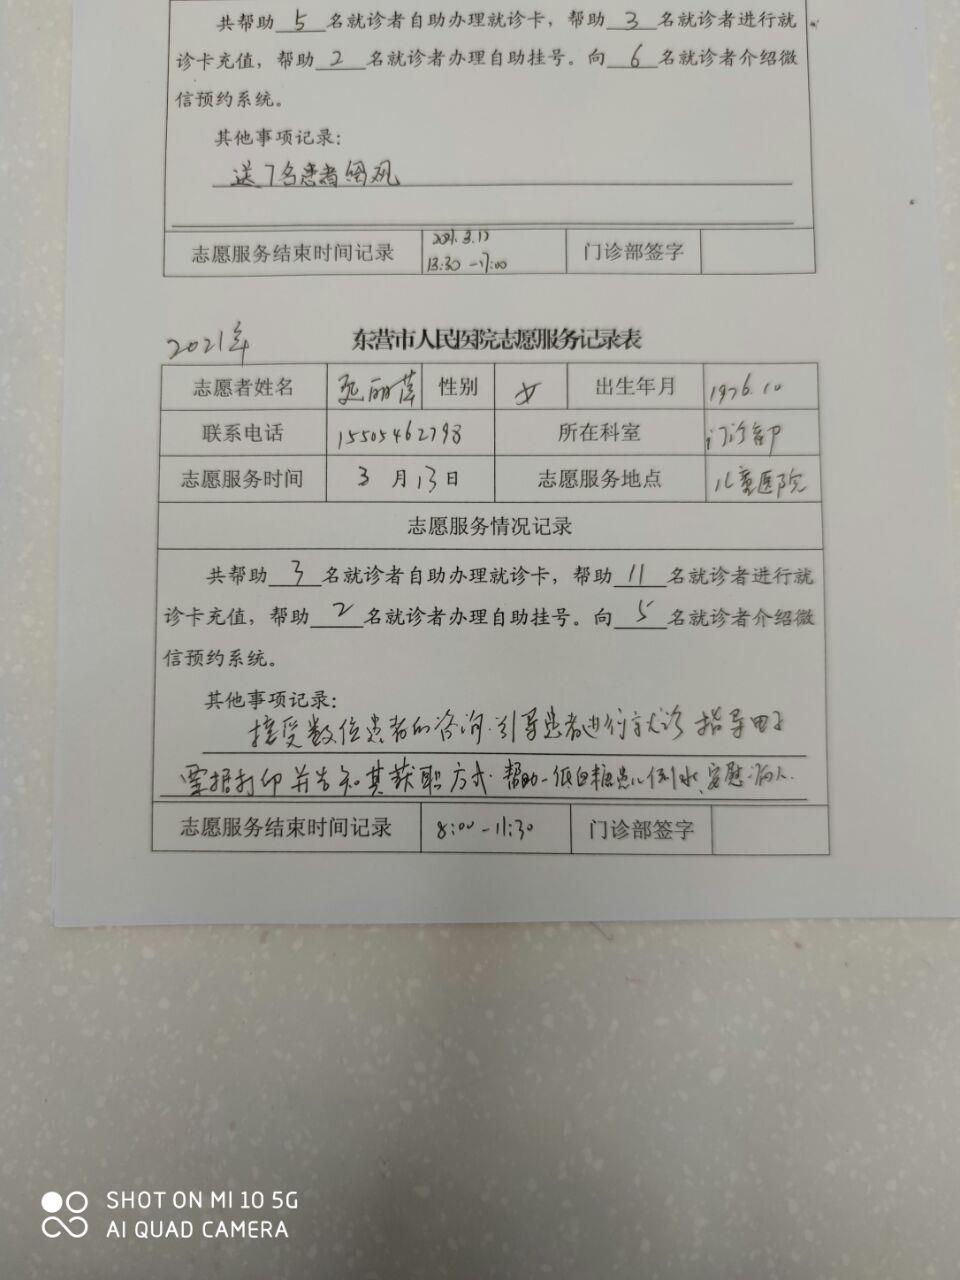 共帮助5名就诊者自助办理就诊卡，帮助3名就诊者进行就
诊卡充值，帮助2名就诊者办理自助挂号。向6名就诊者介绍微
信预约系统。
其他事项记录：
送7名患者留观
志愿服务结束时间记录 2021.3.12 13:30-17:00 门诊部签字
2021年 东营市人民医院志愿服务记录表
志愿者姓名 丽萍 性别 女 出生年月 1976.10
联系电话 15505462798 所在科室 门诊部
志愿服务时间 3月13日 志愿服务地点 儿童医院
志愿服务情况记录
共帮助3名就诊者自助办理就诊卡，帮助11名就诊者进行就
诊卡充值，帮助2名就诊者办理自助挂号。向5名就诊者介绍微
信预约系统。
其他事项记录：
接受数位患者的咨询.引导患者进行就诊 指导电子
票据打印并告知其获取方式.帮助一低血糖患儿倒水、安慰病人.
志愿服务结束时间记录 8:00-11:30 门诊部签字
SHOT ON MI 10 5G
AI QUAD CAMERA